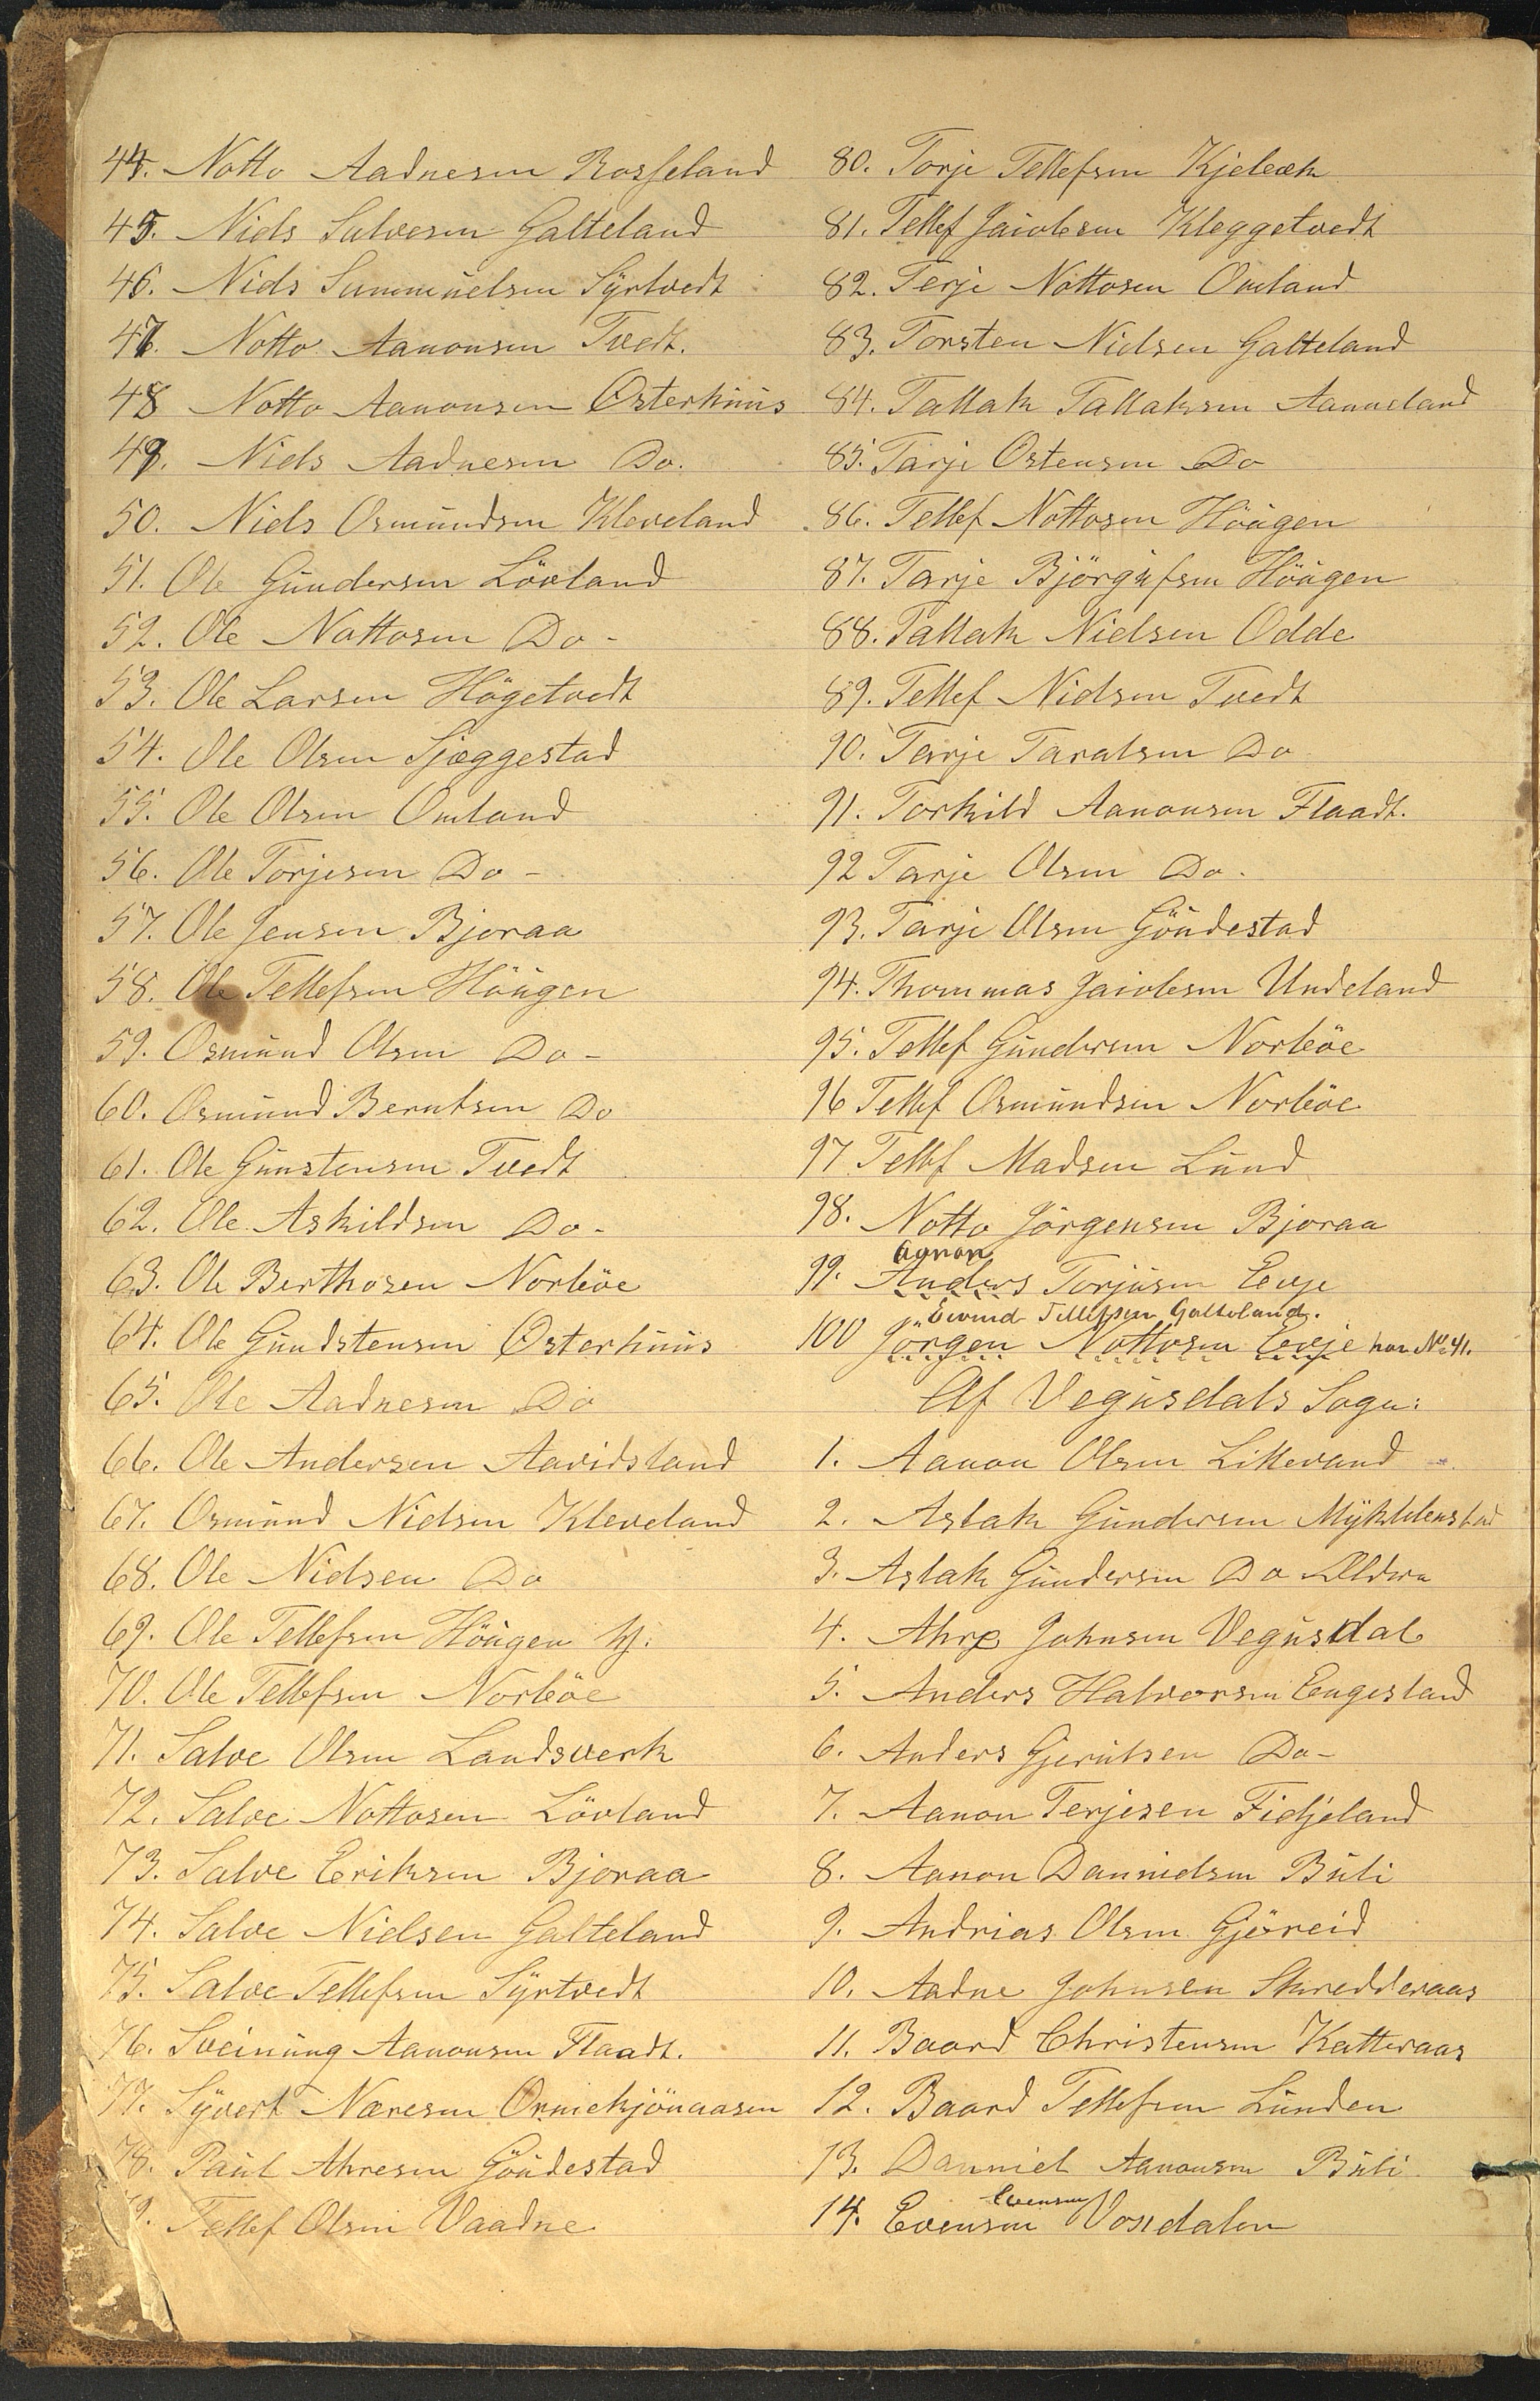 44. Notto Aadnesen Rosseland
45. Niels Salvesen Galteland
46. Niels Sammuelsen Syrtvedt
47. Notto Aanonsen Tvedt.
48 Notto Aanonsen Osterhuus
49. Niels Aadnesen Do.
50. Niels Osmundsen Kleveland
51. Ole Gundersen Lövland
52. Ole Nottosen Do -
53. Ole Larsen Högetvedt
54. Ole Olsen Sjæggestad
55. Ole Olsen Omland
56. Ole Torjesen Do -
57. Ole Jensen Bjoraa
58. Ole Tellefsen Höugen
59. Osmund Olsen Do -
60. Osmund Berntsen Do
61. Ole Gunstensen Tvedt
62. Ole Askildsen Do -
63. Ole Berthosen Norleöe
64. Ole Gundstensen Osterhuus
65. Ole Aadnesen Do
66. Ole Andersen Aavidsland
67. Osmund Nielsen Kleveland
68. Ole Nielsen Do
69. Ole Tellefsen Höugen
70. Ole Tellefsen Norleöe
71. Salve Olsen Landsverk
72. Salve Nottosen Lövland
73. Salve Eriksen Bjoraa
74. Salve Nielsen Galteland
75. Salve Tellefsen Syrtvedt
76. Sveinung Aanonsen Flaadt.
77. Syvert Næresen
78. Paul Ahresen Göudestad
9. Tellef Olsen Vaadne
80. Torje Tellefsen Kjeleæk
81. Tellef Jaivlesen Kleggetvedt
82. Terje Nottosen Omland
83. Torsten Nielsen Galteland
84. Tallak Tallaksen Aanneland
85. Tarje Ostensen Do
86. Tellef Nottosen Höugen
87. Tarje Björgufsen Höugen
88. Tallak Nielsen Odde
89. Tellef Nielsen Tvedt
90. Tarje Taralsen Do
91. Torkild Aanonsen Flaadt.
92 Tarje Olsen Do.
93. Tarje Olsen Göudestad
94. Thommas Jaivlesen Undeland
95. Tellef Gundersen Norleöe
96 Tellef Osmundsen Norleöe
97 Tellef Madsen Lund
98. Notto Jörgensen Bjoraa
Aanon
99. Anders Torjusen Evje
Eivind Tellefsen Galteland.
100 Jörgen Nottosen Evje har No 41.
Af Vegusdals Sogn:
1. Aanon Olsen Littevand
2. Aslak Gundersen Myklebenstad
3. Aslak Gundersen Do Ældre
4. Ahre Johnsen Vegusdal
5. Anders Halvorsen Engesland
6. Anders Gjerulsen Do -
7. Aanon Terjesen Fidjeland
8. Aanon Dannielsen Buli
9. Andrias Olsen Gjöreid
10. Aadne Johnsen Skredderaas
11. Baard Christensen Katteraas
12. Baard Tellefsen Lunden
13. Danniel Aanonsen Buli
Evensen
14. Evensen Vossdalen